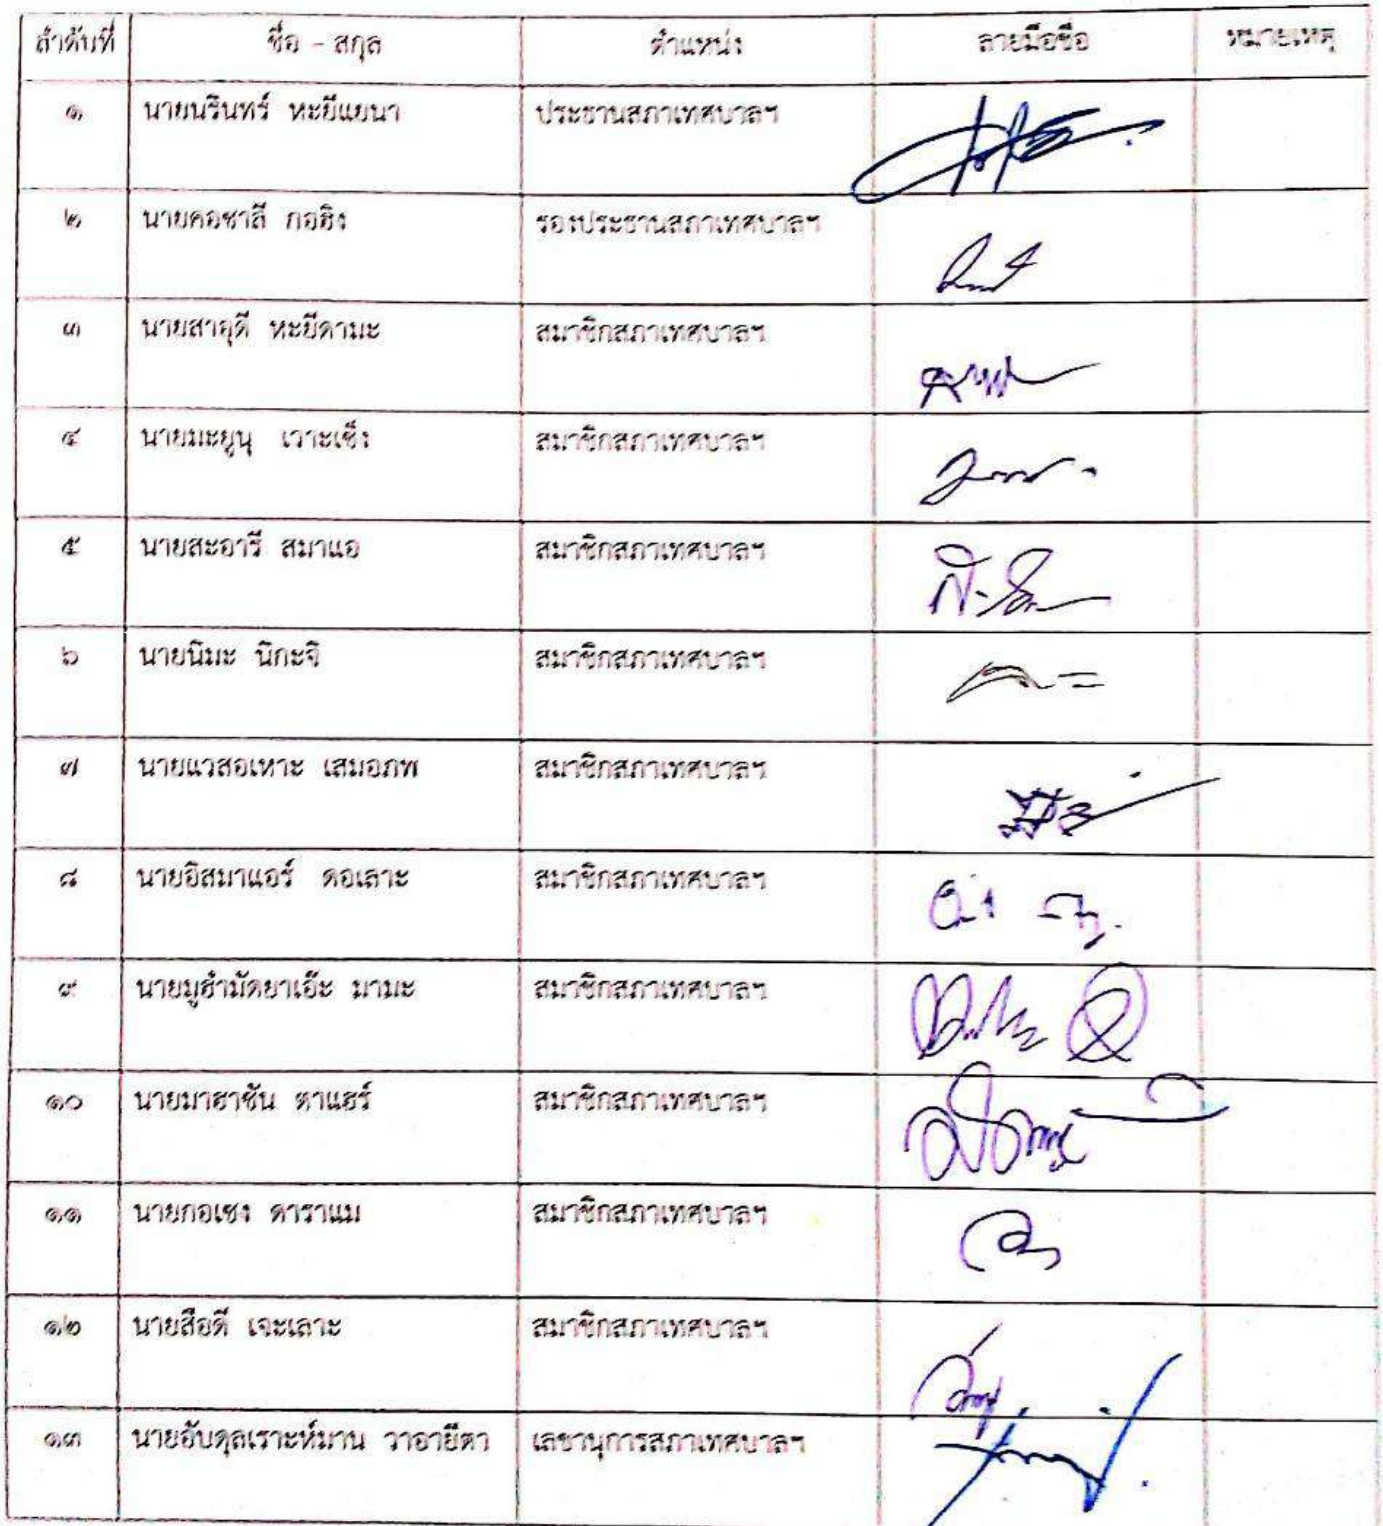 ลำดับที่ ชื่อ - สกุล ตำแหน่ง ลายมือชื่อ หมายเหตุ
๑ นายนรินทร์ หะยีแยนา ประธานสภาเทศบาลฯ
๒ นายคอซาลี กอฮิง รองประธานสภาเทศบาลฯ
๓ นายสาอุดี หะยีดามะ สมาชิกสภาเทศบาลฯ
๔ นายมะยูนุ เวาะเซ็ง สมาชิกสภาเทศบาลฯ
๕ นายสะอารี สมาแอ สมาชิกสภาเทศบาลฯ
๖ นายนิมะ นิกะจิ สมาชิกสภาเทศบาลฯ
๗ นายแวสอเหาะ เสมอภพ สมาชิกสภาเทศบาลฯ
๘ นายอิสมาแอร์ ดอเลาะ สมาชิกสภาเทศบาลฯ
๙ นายมูฮำมัดยาเอ๊ะ มามะ สมาชิกสภาเทศบาลฯ
๑๐ นายมาฮาซัน ตาแฮร์ สมาชิกสภาเทศบาลฯ
๑๑ นายกอเซง ดาราแม สมาชิกสภาเทศบาลฯ
๑๒ นายสือดี เจะเลาะ สมาชิกสภาเทศบาลฯ
๑๓ นายอับดุลเราะห์มาน วาอายีตา เลขานุการสภาเทศบาลฯ